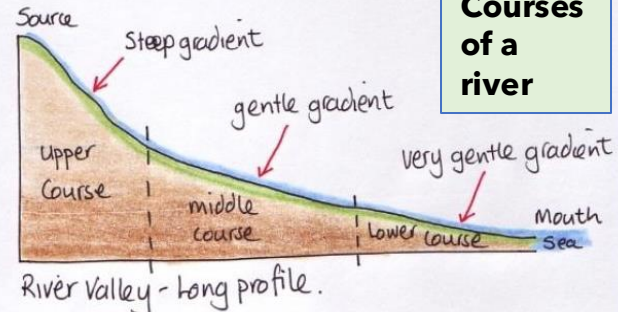 Source
Courses
of a
river
Steep gradient
gentle gradient
very gentle gradient
upper
Course
middle
course
Lower course
Mouth
Sea
River Valley - Long profile.